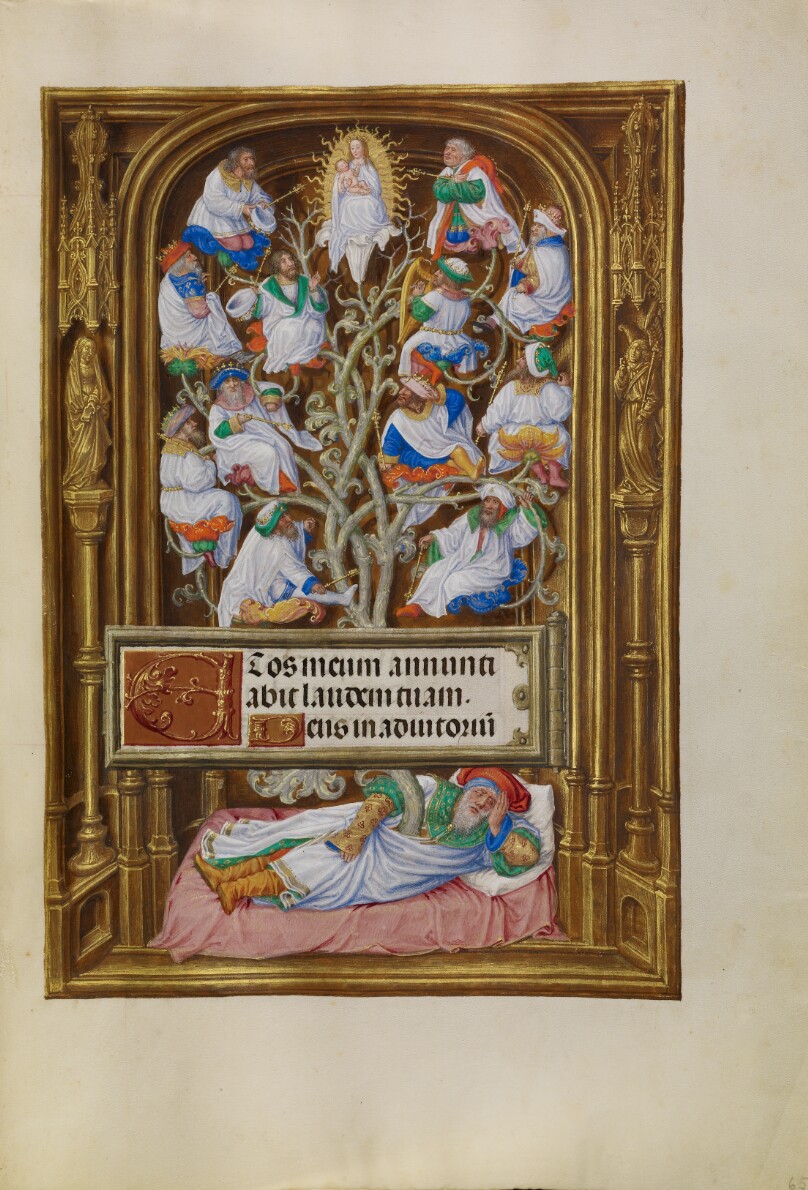 Et os meum annunti
abit laudem tuam.
Deus in adiutoriū